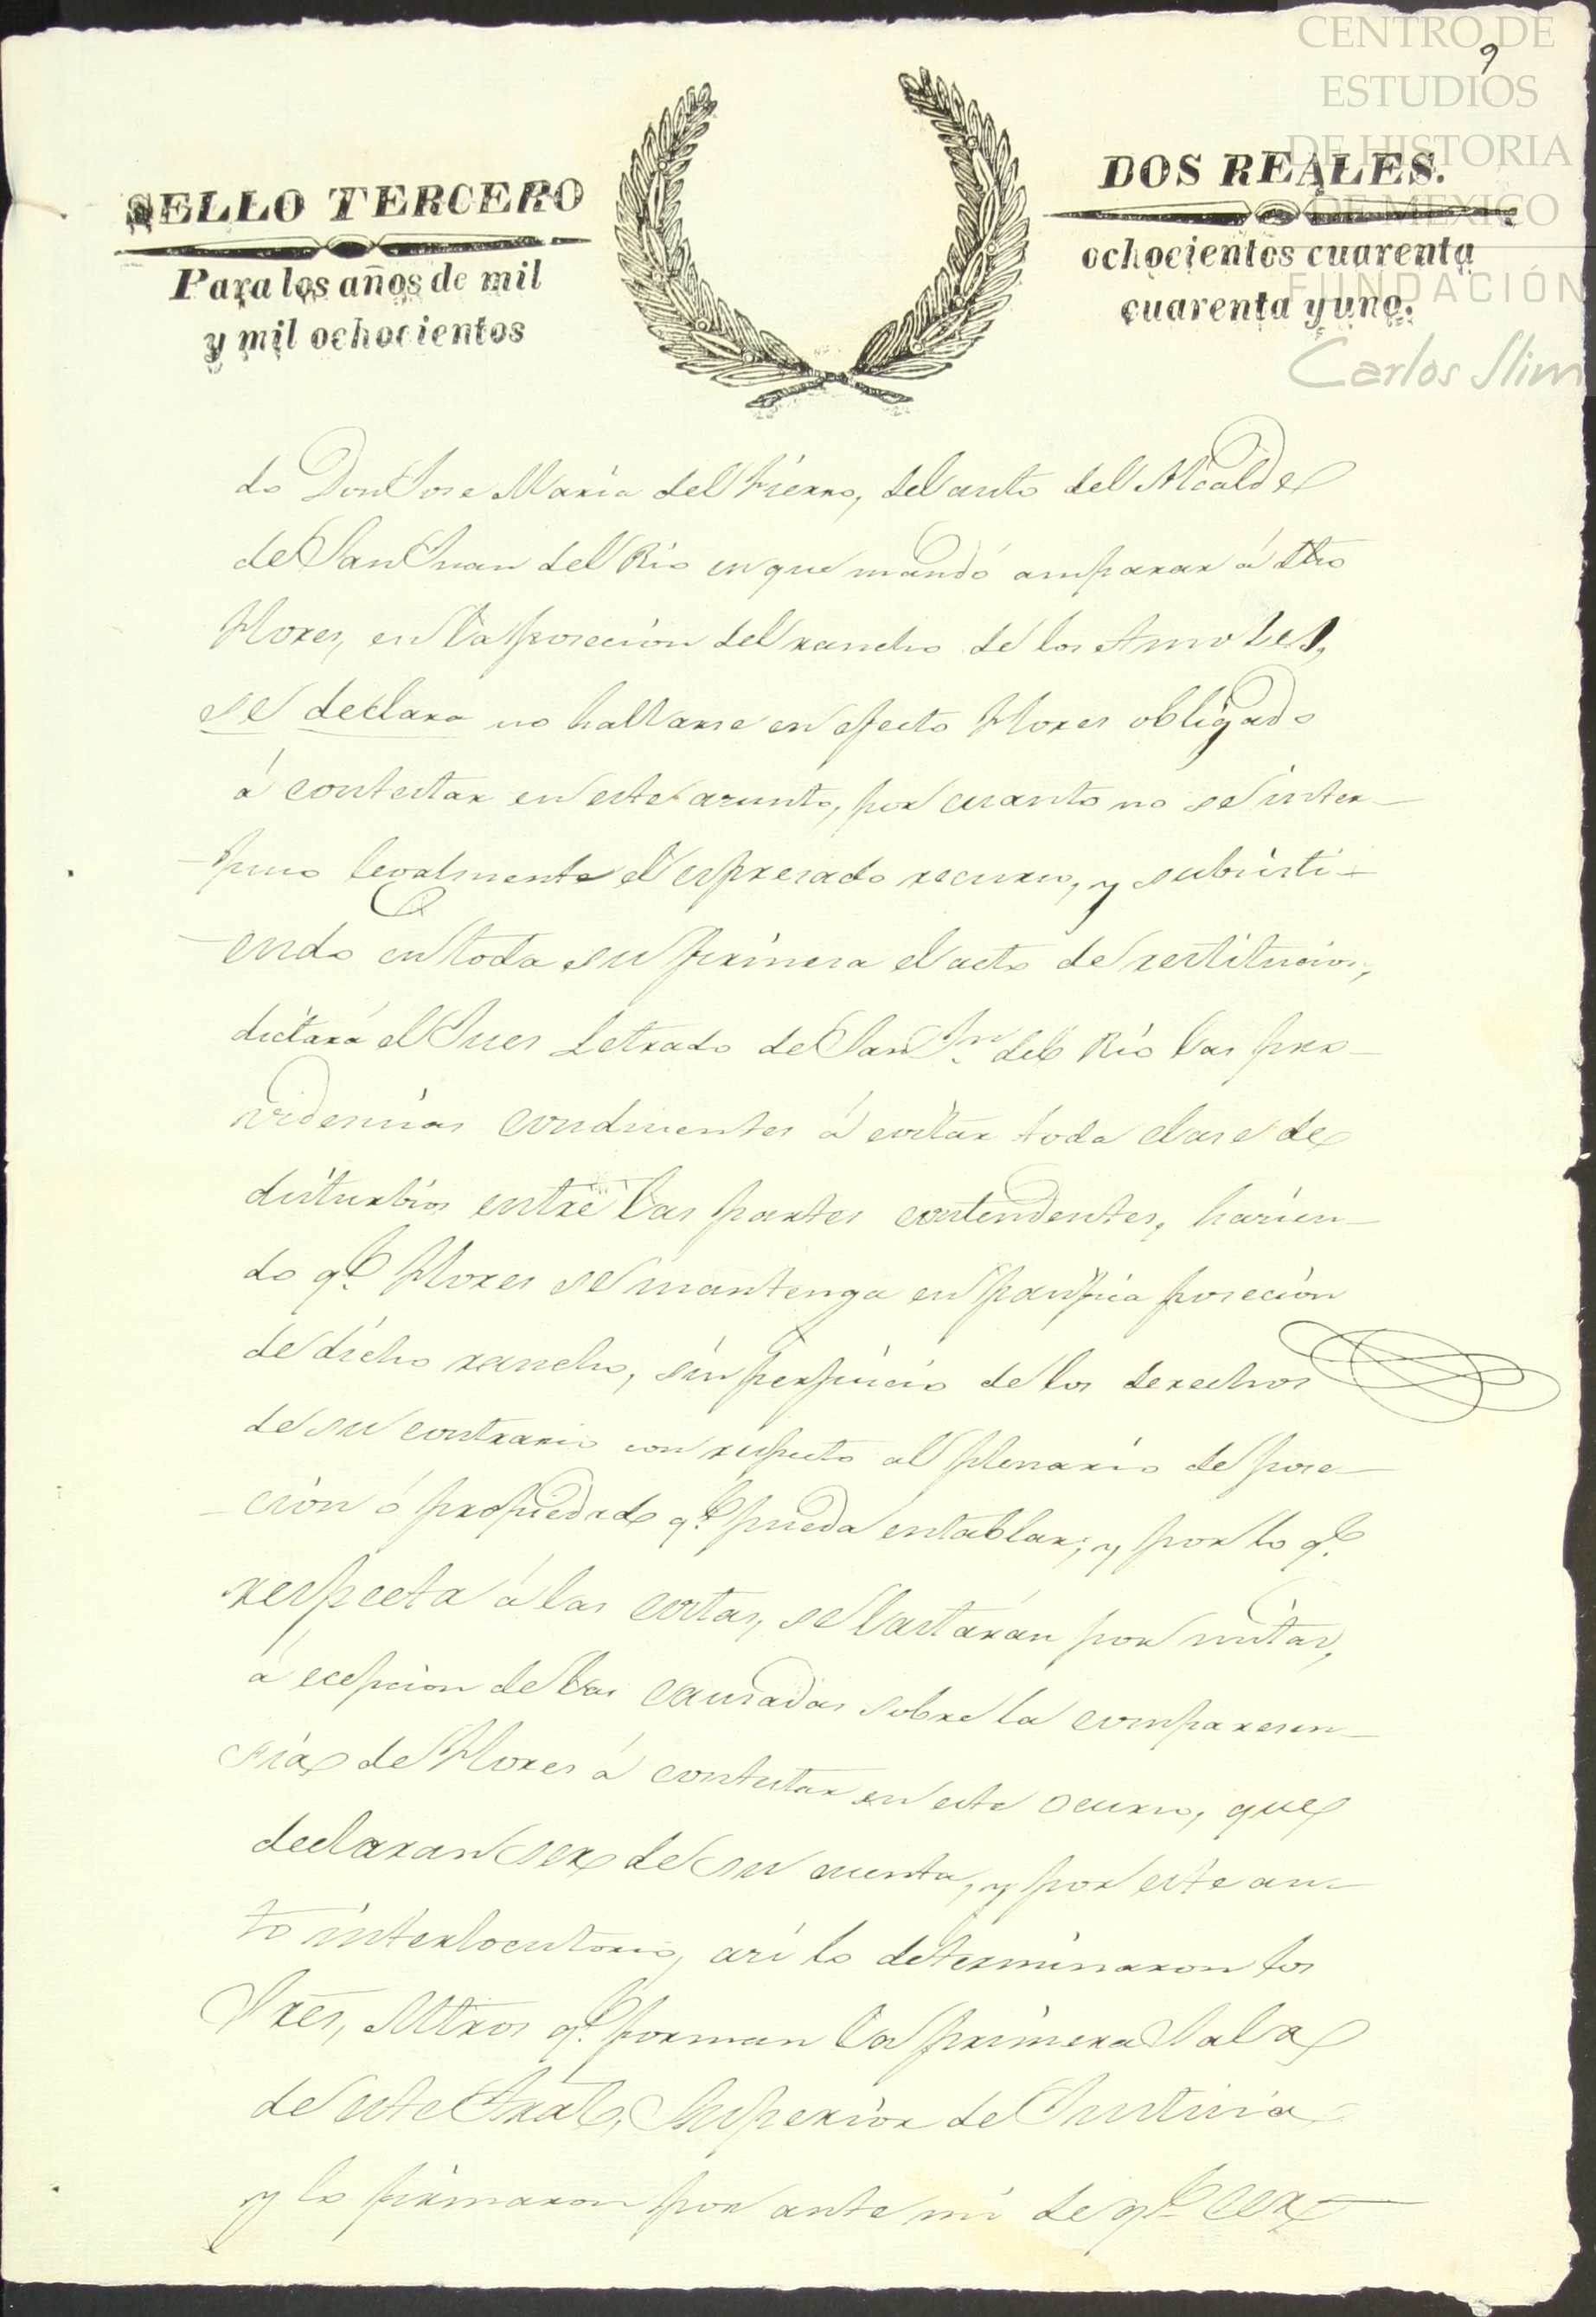 CENTRO DE
ESTUDIOS
DE HISTORIA
DE MEXICO
FUNDACIÓN
Carlos Slim
9
SELLO TERCERO
Para los años de mil
y mil ochocientos
DOS REALES.
ochocientos cuarenta
cuarenta y uno.
do Don Jose Maria del Fierro, del auto del Alcalde
de San Juan del Rio en que mandó amparar á dho
Flores, en la posecion del rancho de los Amoles,
se declara no hallarse en efecto Flores obligado
á contestar en este asunto, por cuanto no se inter-
puso legalmente el espresado recurso, y subsisti-
endo en toda su firmesa el acto de restitucion,
dictará el Jues Letrado de San Jn. del Rio las pro-
videncias conducentes á evitar toda clase de
disturbios entre las partes contendentes, hacien-
do qe. Flores se mantenga en pacifica posecion
de dicho rancho, sin perjuicio de los derechos
de su contrario con respecto al plenario de pose-
cion ó propiedad qe. pueda entablar; y por lo qe.
respecta á las costas, se lastarán por mitad,
á ecepcion de las causadas sobre la comparesen-
sia de Flores á contestar en este ocurso, que
declaran ser de su cuenta, y por este au-
to interlocutorio, asi lo determinaron los
Sres, Mtros qe. forman la primera Sala
de este Tral, Superior de Justicia
y lo firmaron por ante mi de qe. cer-